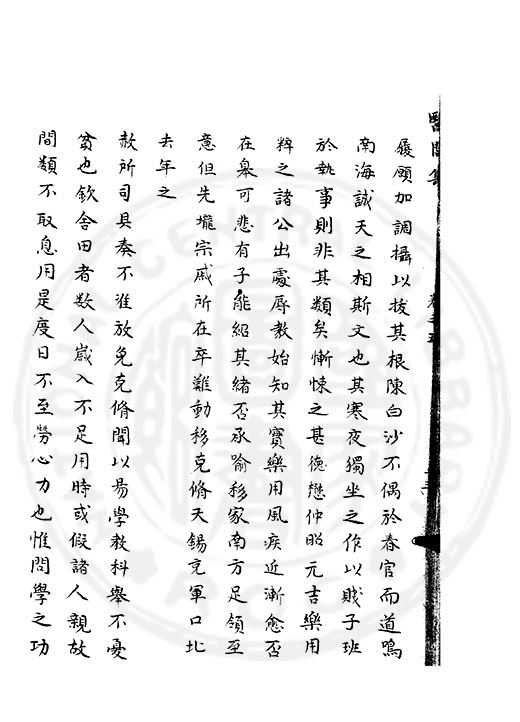 履顧加調攝以拔其根陳白沙不偶於春官而道鳴
南海誠天之相斯文也其寒夜獨坐之作以賤子班
於執事則非其類矣慚悚之甚德懋仲昭元吉樂用
粹之諸公出處辱教始知其實樂用風疾近漸愈否
在臯可悲有子能紹其緒否承喻移家南方足領至
意但先壠宗戚所在卒難動移克脩天錫充軍口北
去年之
赦所司具奏不准放免克脩聞以易學教科舉不憂
貧也欽舍田者数人嵗入不足用時或假諸人親故
間類不取息用是度日不至勞心力也惟問學之功